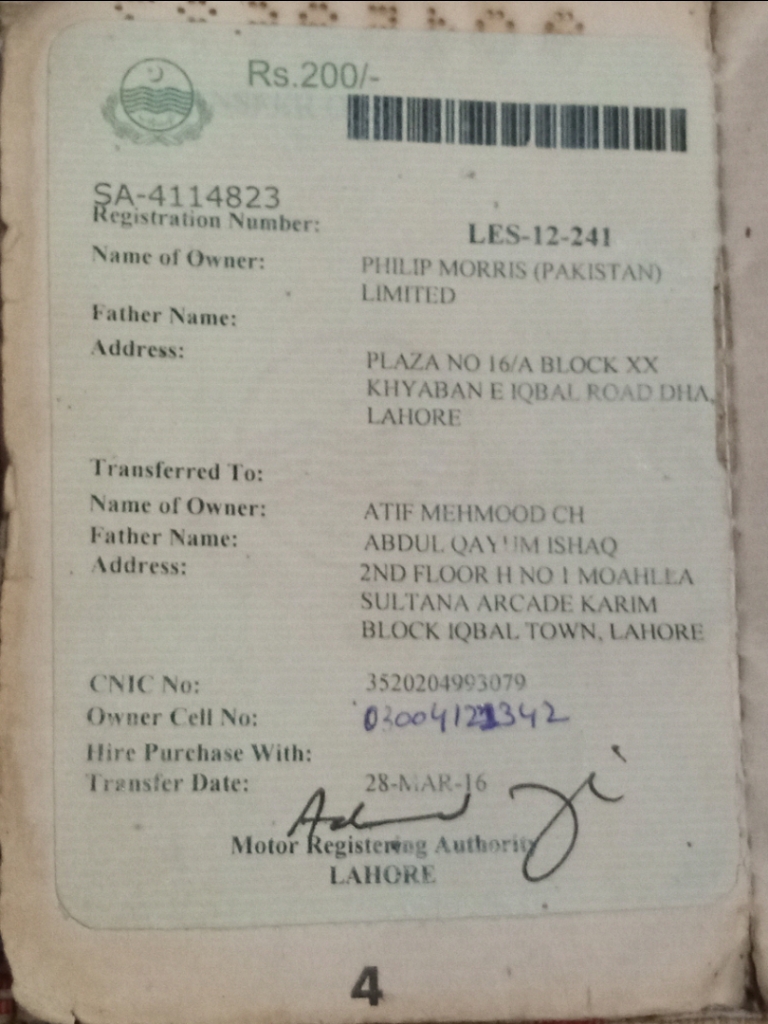 Rs.200/-
SA-4114823
Registration Number: LES-12-241
Name of Owner: PHILIP MORRIS (PAKISTAN)
LIMITED
Father Name:
Address: PLAZA NO 16/A BLOCK XX
KHYABAN E IQBAL ROAD DHA,
LAHORE
Transferred To:
Name of Owner: ATIF MEHMOOD CH
Father Name: ABDUL QAYUM ISHAQ
Address: 2ND FLOOR H NO 1 MOAHLLA
SULTANA ARCADE KARIM
BLOCK IQBAL TOWN, LAHORE
CNIC No: 3520204993079
Owner Cell No: 03004121342
Hire Purchase With:
Transfer Date: 28-MAR-16
Motor Registering Authority
LAHORE
4